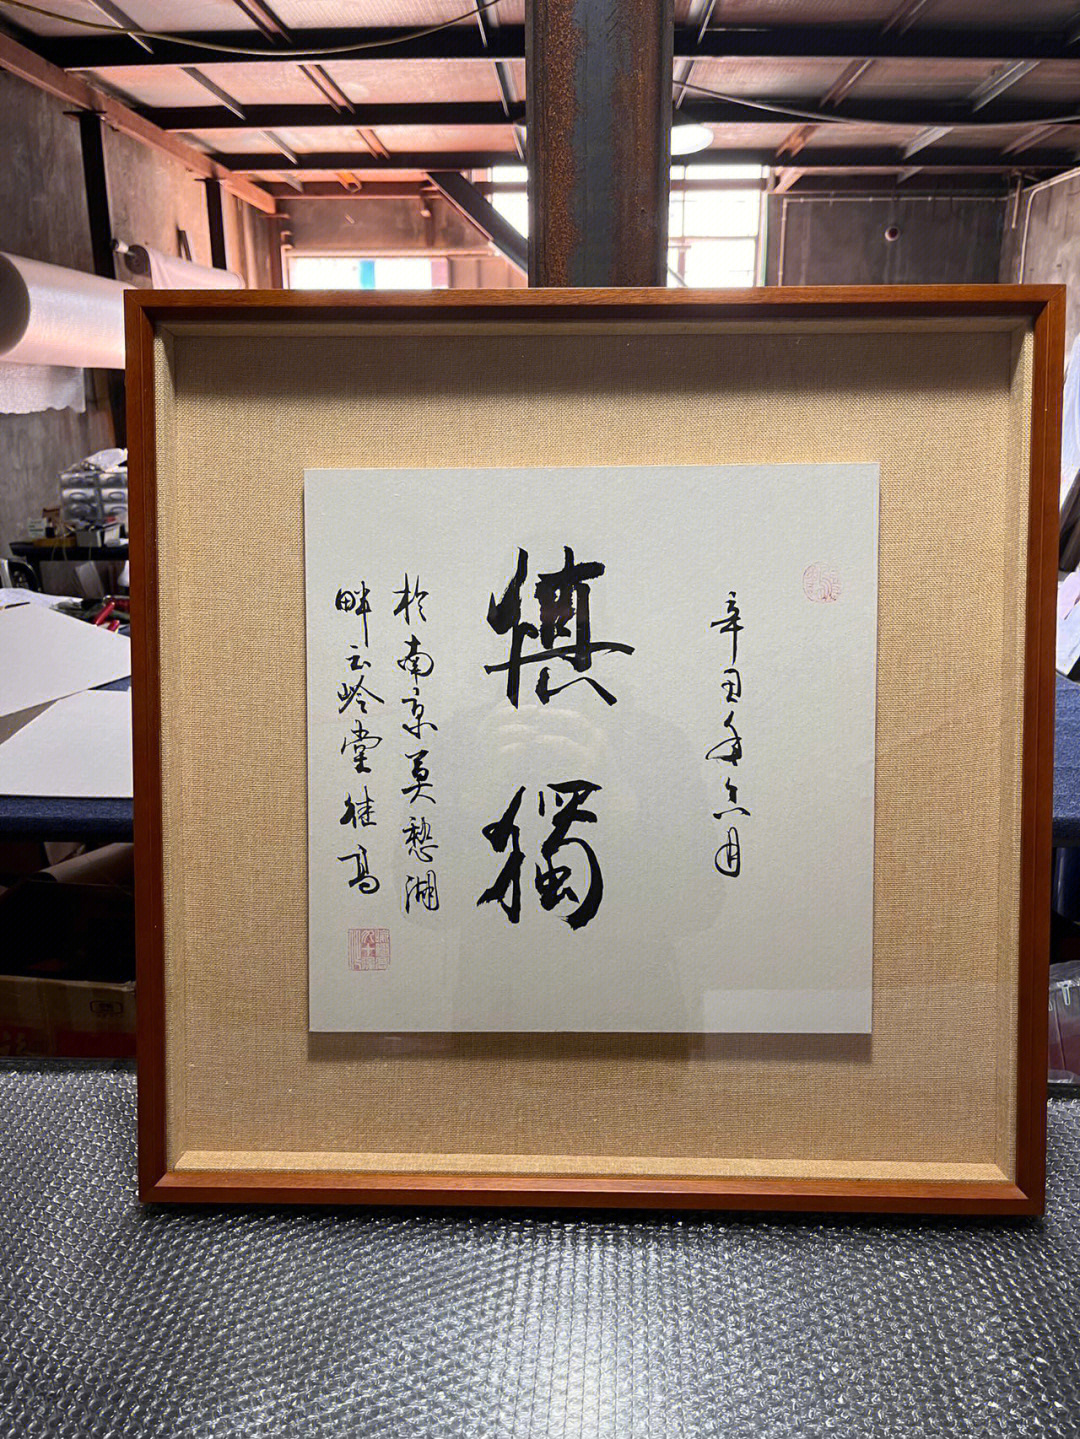 辛丑年六月
慎獨
於南京莫愁湖
畔云岭堂高